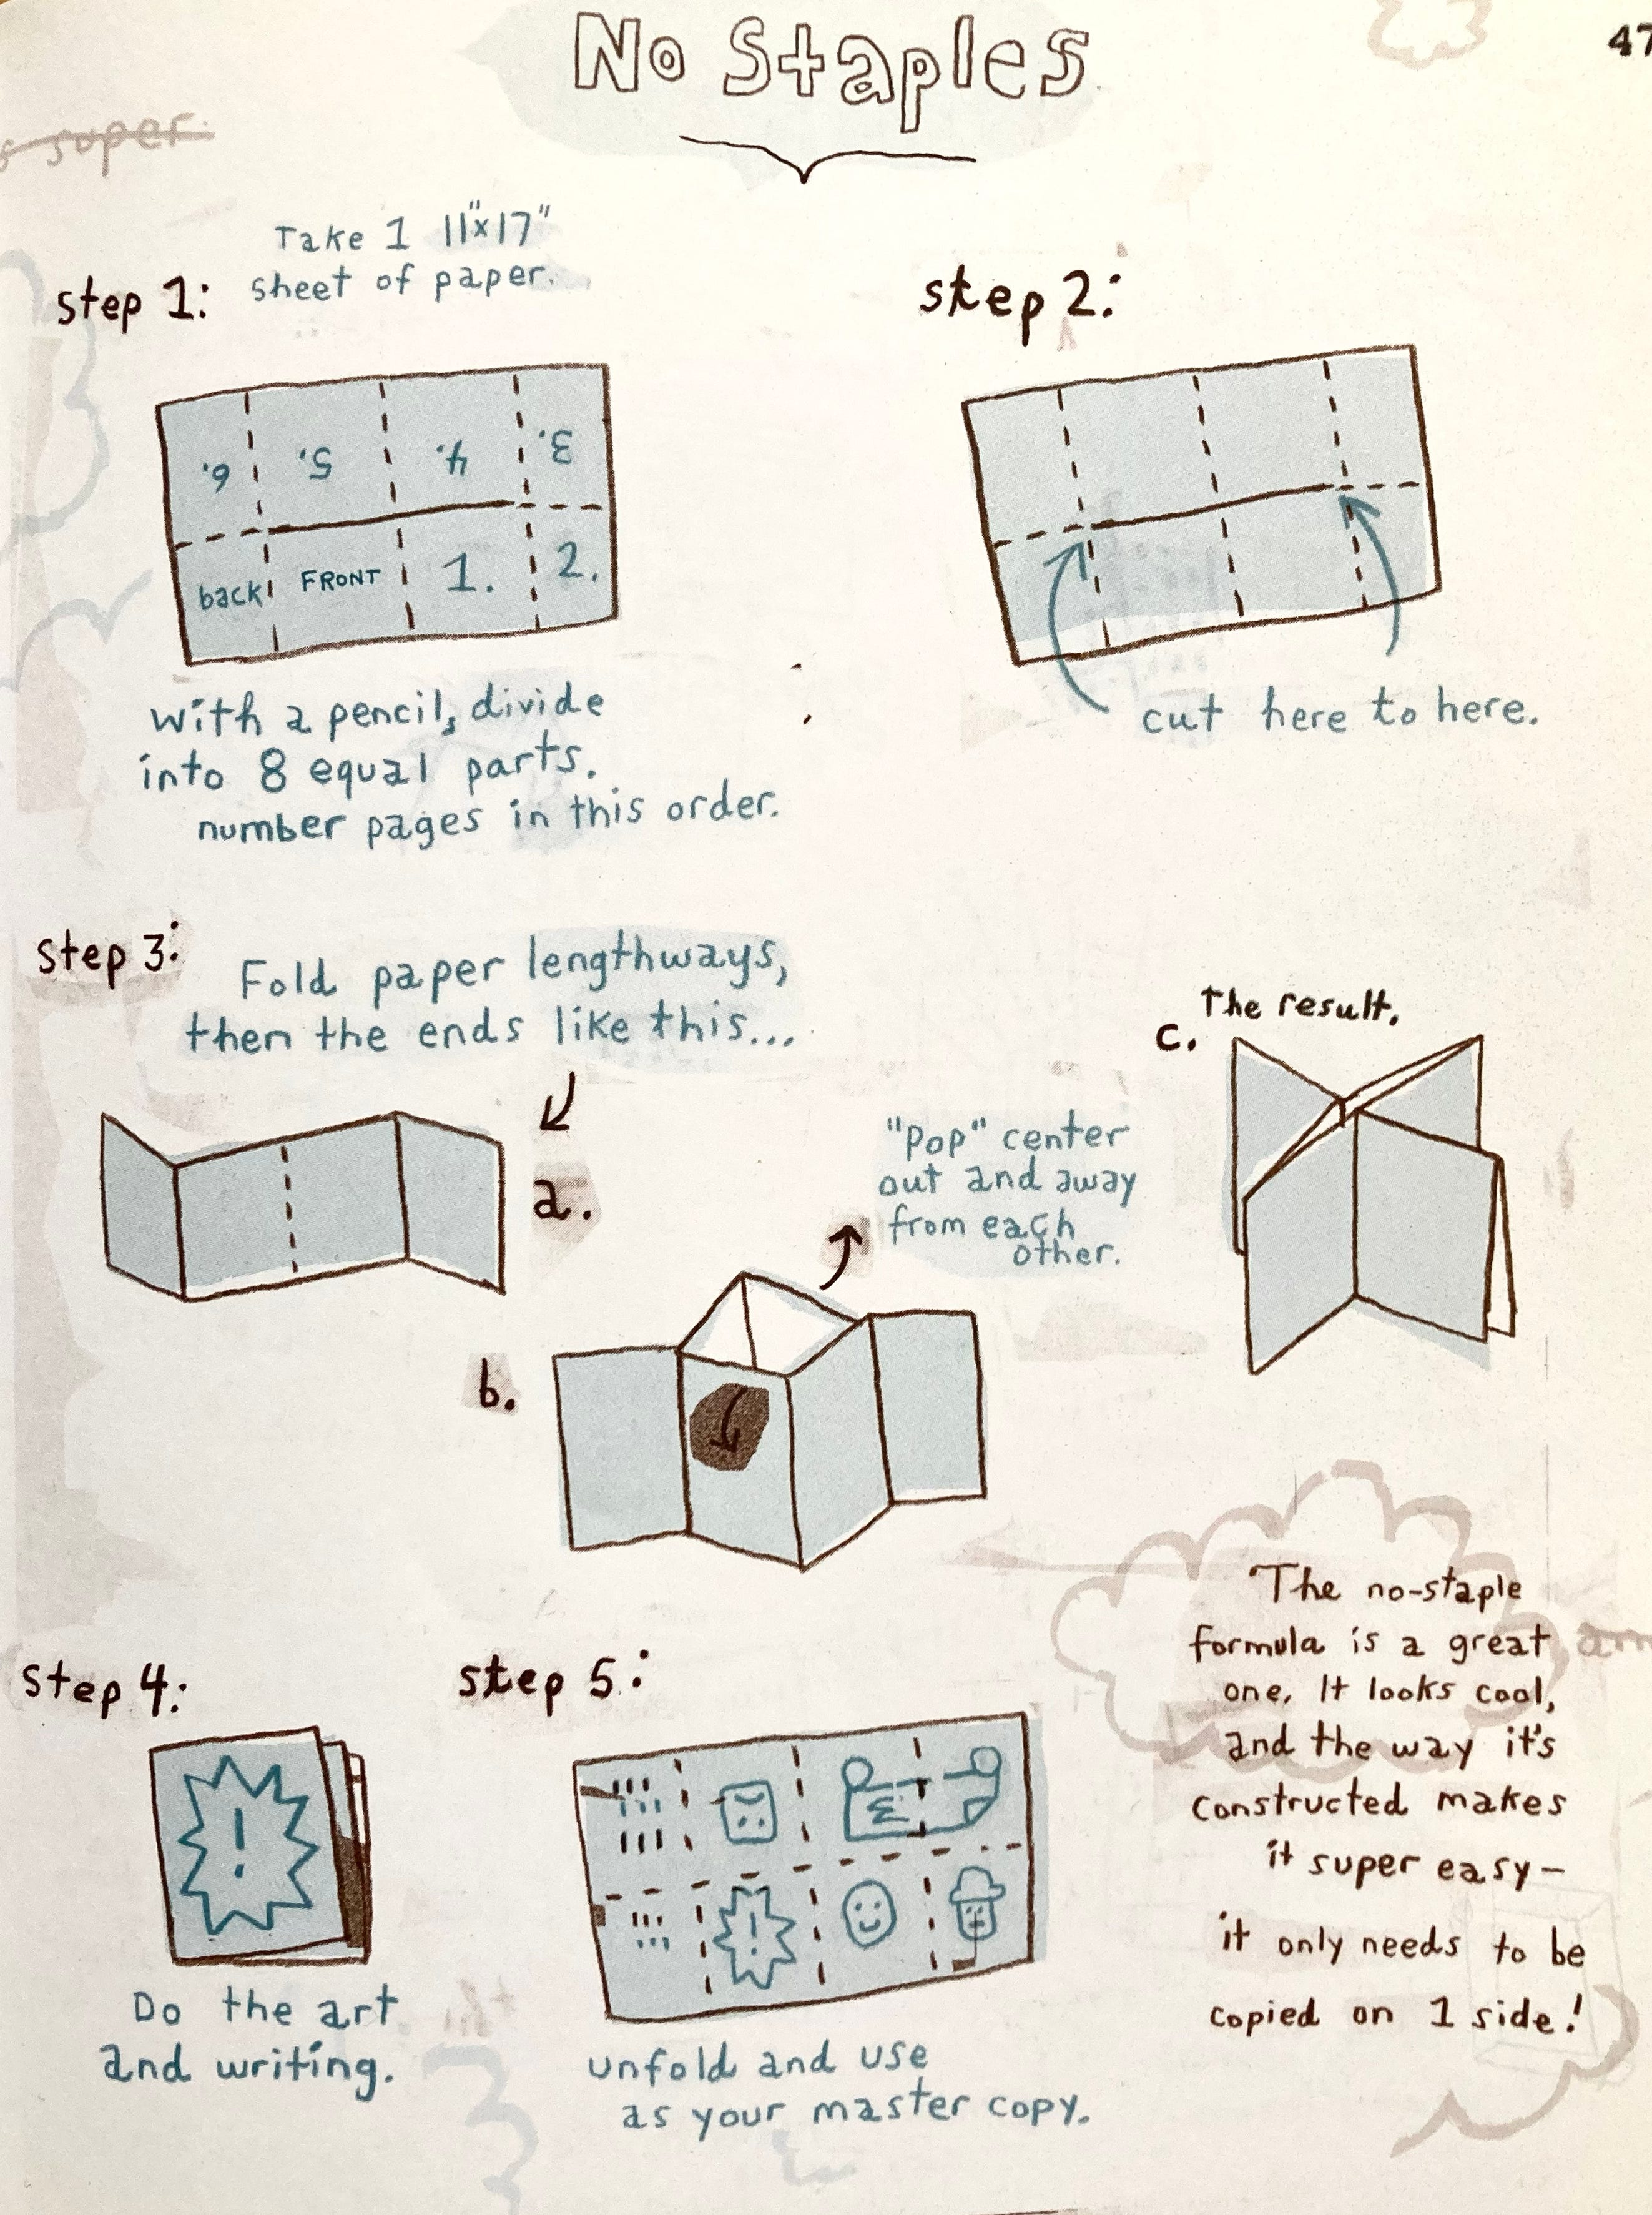 No Staples
47
super
step 1:
Take 1 11"x17"
sheet of paper.
6. 5. 4. 3.
back FRONT 1. 2.
with a pencil, divide
into 8 equal parts.
number pages in this order.
step 2:
cut here to here.
step 3:
Fold paper lengthways,
then the ends like this...
a.
b.
"pop" center
out and away
from each
other.
c.
The result.
step 4:
!
Do the art
and writing.
step 5:
!
unfold and use
as your master copy.
The no-staple
formula is a great
one. It looks cool,
and the way it's
constructed makes
it super easy—
it only needs to be
copied on 1 side!